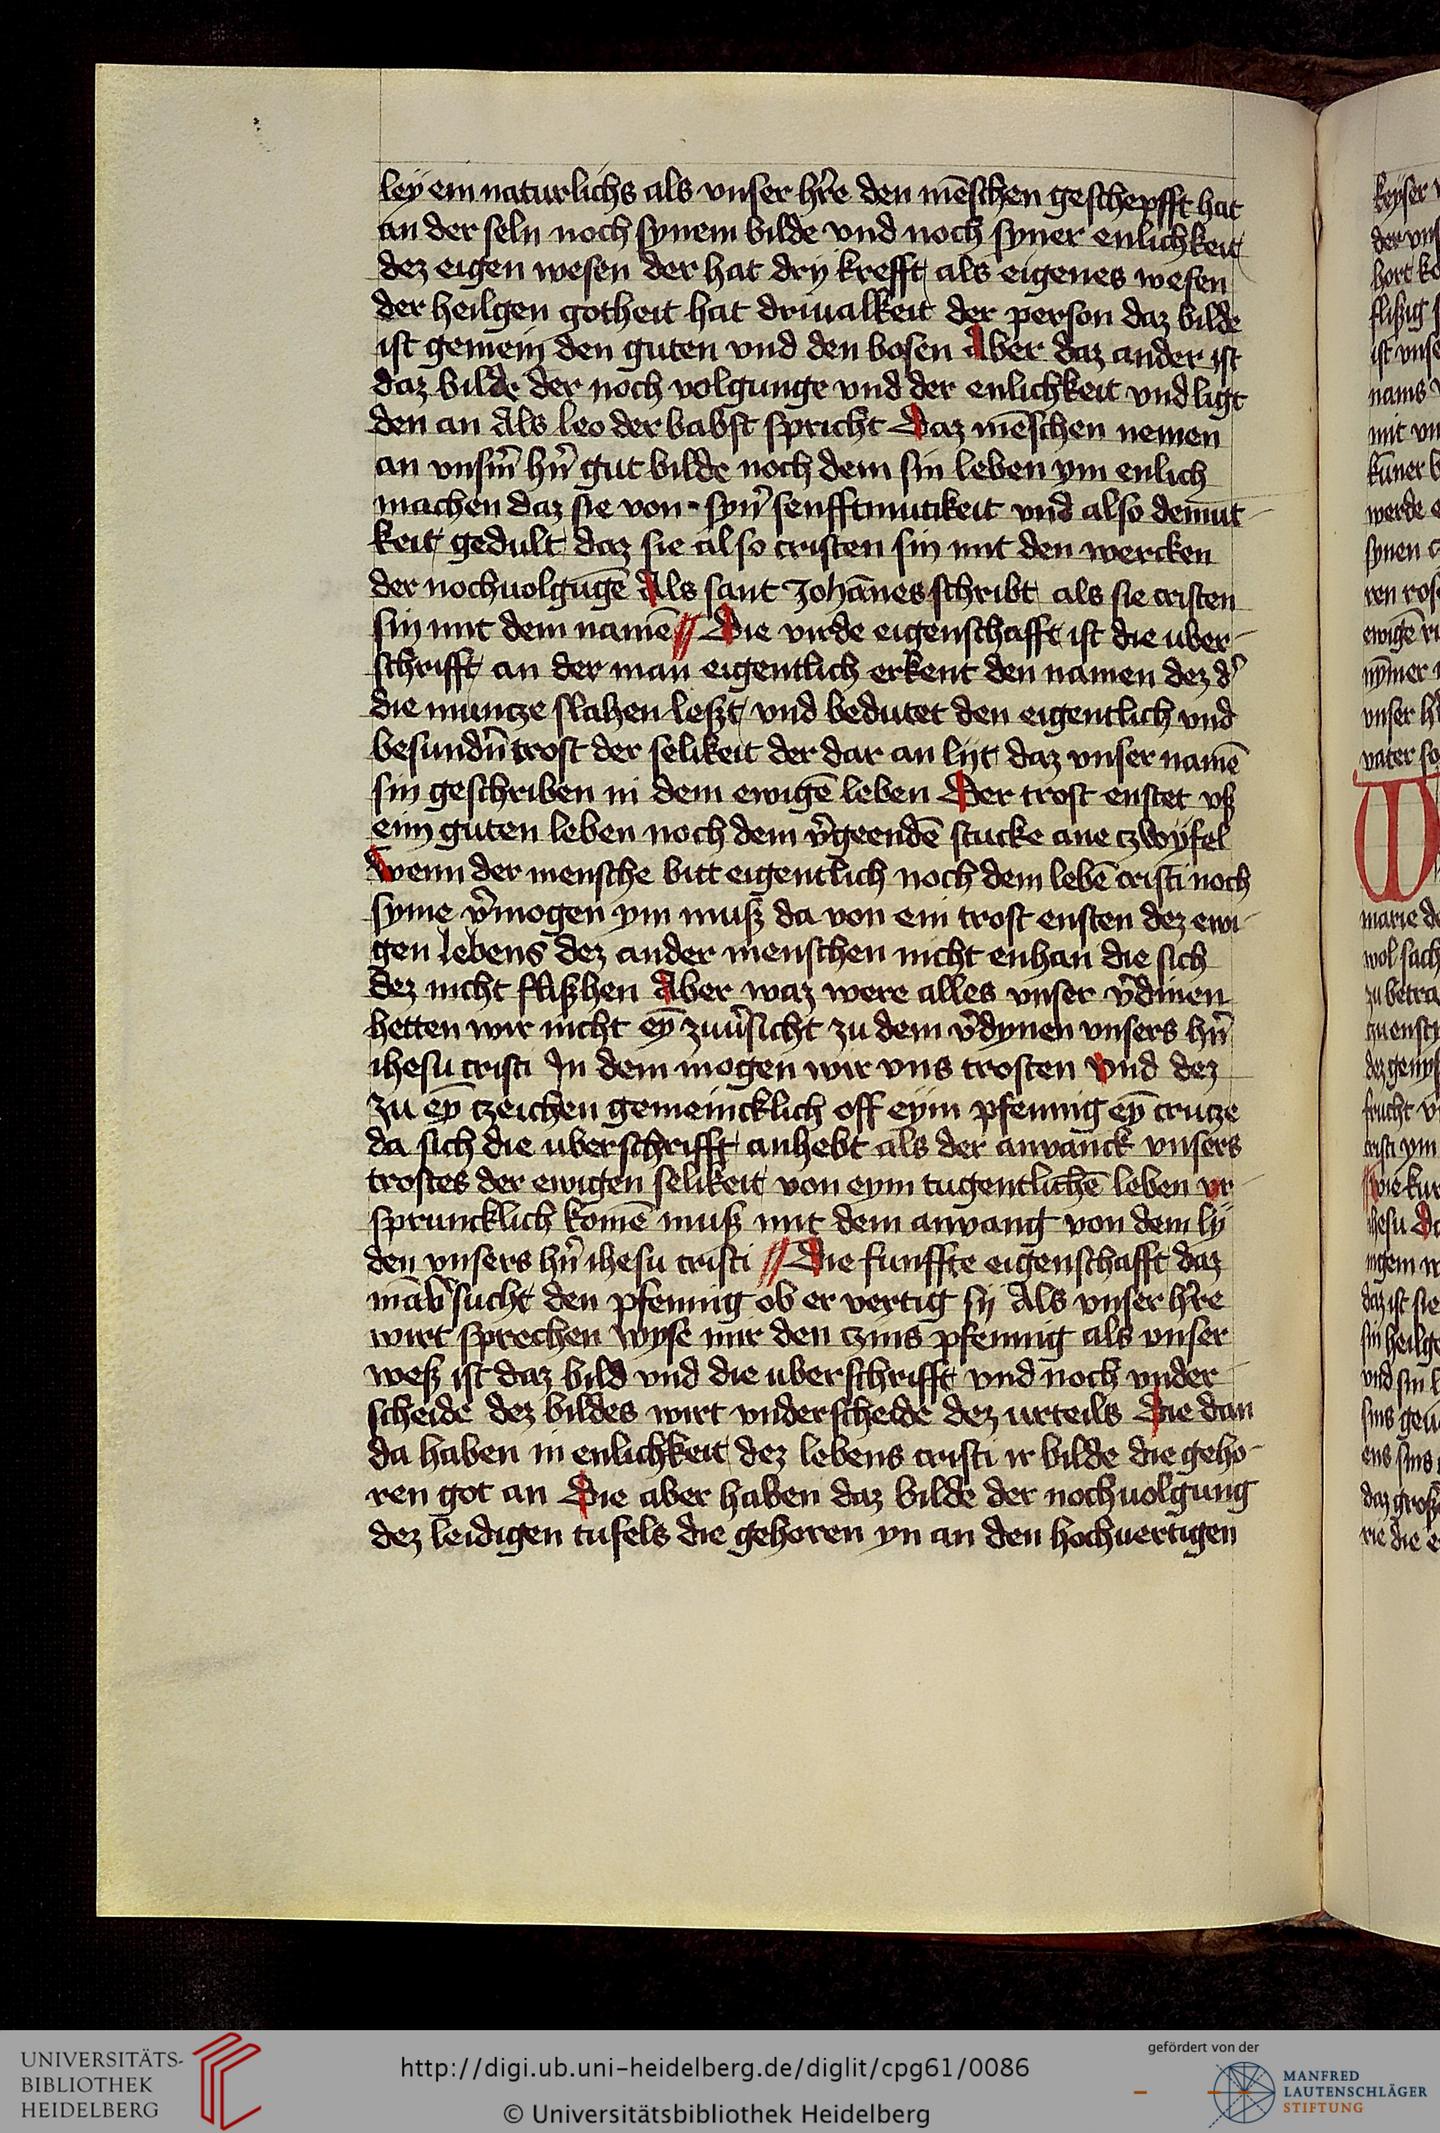 ley ein naturlichs als vnser hr̃e den mẽschen geschepfft hat
an der seln noch synem bilde vnd noch syner enlichkeit
dez eigen wesen der hat drij krefft als eigenes wesen
der heilgen gotheit hat driualkeit der person daz bilde
ist gemein den guten vnd den bosen Aber daz ander ist
daz bilde der noch volgunge vnd der enlichkeit vnd ligt
den an Als leo der babst spricht Daz mẽschen nemen
an vnsm̃ hñ gut bilde noch dem sin leben ym enlich
machen daz sie von syñ senfftmutikeit vnd also demut
keit gedult daz sie also cristen sin mit den wercken
der nochuolgũgẽ Als sant Johãnes schribt als sie cristen
sin mit dem namẽ // Die virde eigenschafft ist die uber-
schrifft an der man eigentlich erkent den namen dez d᷑
die muncze slahen leßt vnd bedutet den eigentlich vnd
besundñ trost der selikeit der dar an lijt daz vnser namẽ
sin geschriben in dem ewigẽ leben Der trost enstet vß
eim guten leben noch dem v᷑geendẽ stucke ane czwyfel
Wenn der mensche bitt eigentlich noch dem lebẽ cristi noch
syme v᷑mogen ym muß da von ein trost ensten dez ewi-
gen lebens dez ander menschen nicht enhan die sich
dez nicht flißhen Aber waz were alles vnser v᷑dinen
hetten wir nicht eỹ zuu᷑sicht zu dem v᷑dynen vnsers hñ
ihesu cristi In dem mogen wir vns trosten vnd dez
zu eỹ czeichen gemeincklich off eym pfennig eỹ crucze
da sich die uberschrifft anhebt als der anvanck vnsers
trostes der ewigen selikeit von eym tugentlichẽ leben vr-
spruncklich komẽ muß mit dem anvang von dem lij
den vnsers hñ ihesu cristi // Die funffte eigenschafft daz
mã v᷑sucht den pfennig ob er vertig sij Als vnser hr̃e
wirt sprechen wyse mir den czins pfennig als vnser
weß ist daz bild vnd die uberschrifft vnd noch vnder-
scheide dez bildes wirt vnderscheide dez urteils Die dan
da haben in enlichkeit dez lebens cristi ir bilde die geho-
ren got an Die aber haben daz bilde der nochuolgung
dez leidigen tufels die gehoren yn an den hochuertigen
keyser
der vns
flißig
nams
mit
werde
synen
vnser
vater
marie
wol
zu
frucht
ihesu
daz ist sie
sin heilge
vnd sin
daz groß
rie die
UNIVERSITÄTS-
BIBLIOTHEK
HEIDELBERG
http://digi.ub.uni-heidelberg.de/diglit/cpg61/0086
© Universitätsbibliothek Heidelberg
gefördert von der
MANFRED
LAUTENSCHLÄGER
STIFTUNG